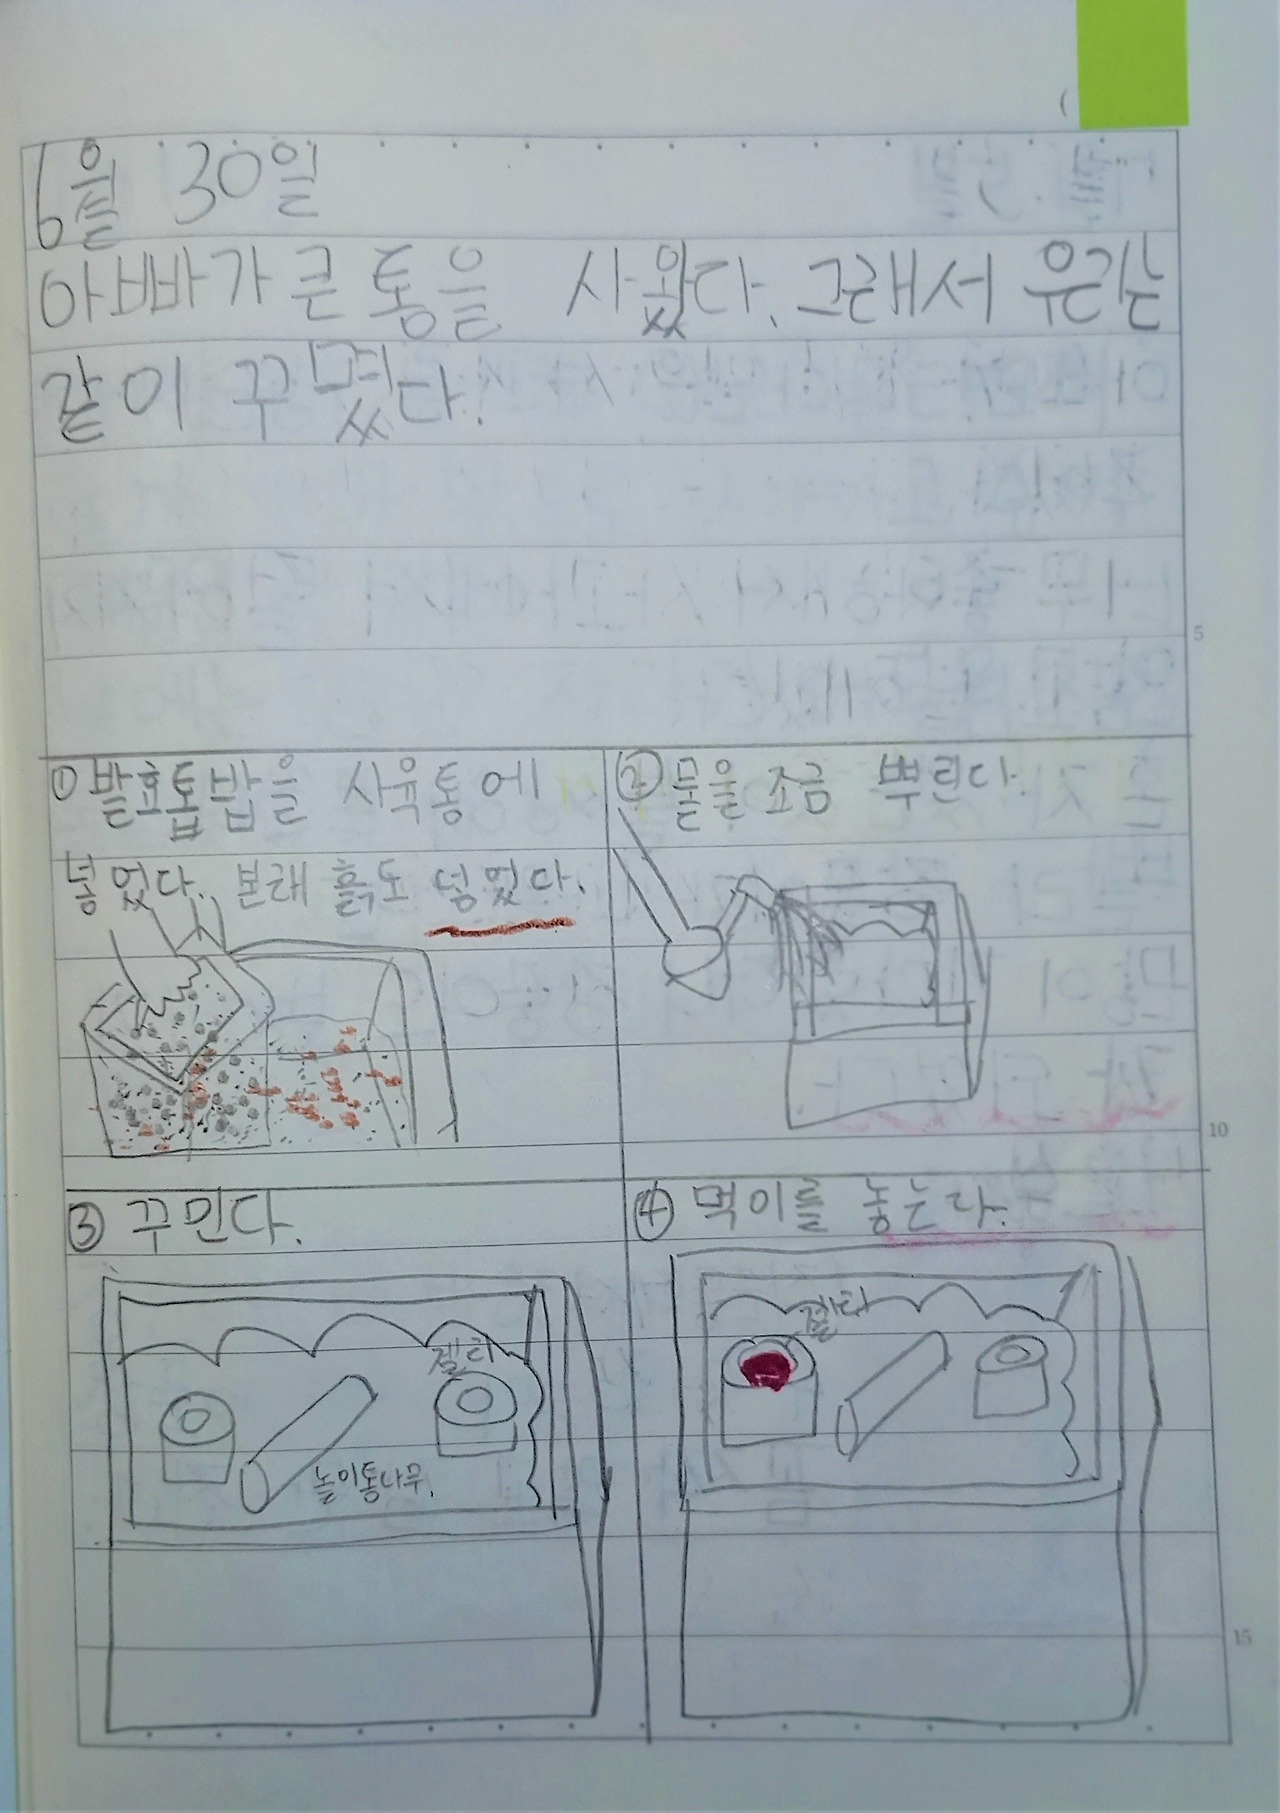 6월 30일
아빠가 큰 통을 사왔다. 그래서 우리는
같이 꾸몄다.
5
① 발효톱밥을 사육통에
넣었다. 본래 흙도 넣었다.
② 물을 조금 뿌린다.
10
③ 꾸민다.
젤리
놀이통나무.
④ 먹이를 놓는다.
젤리
15